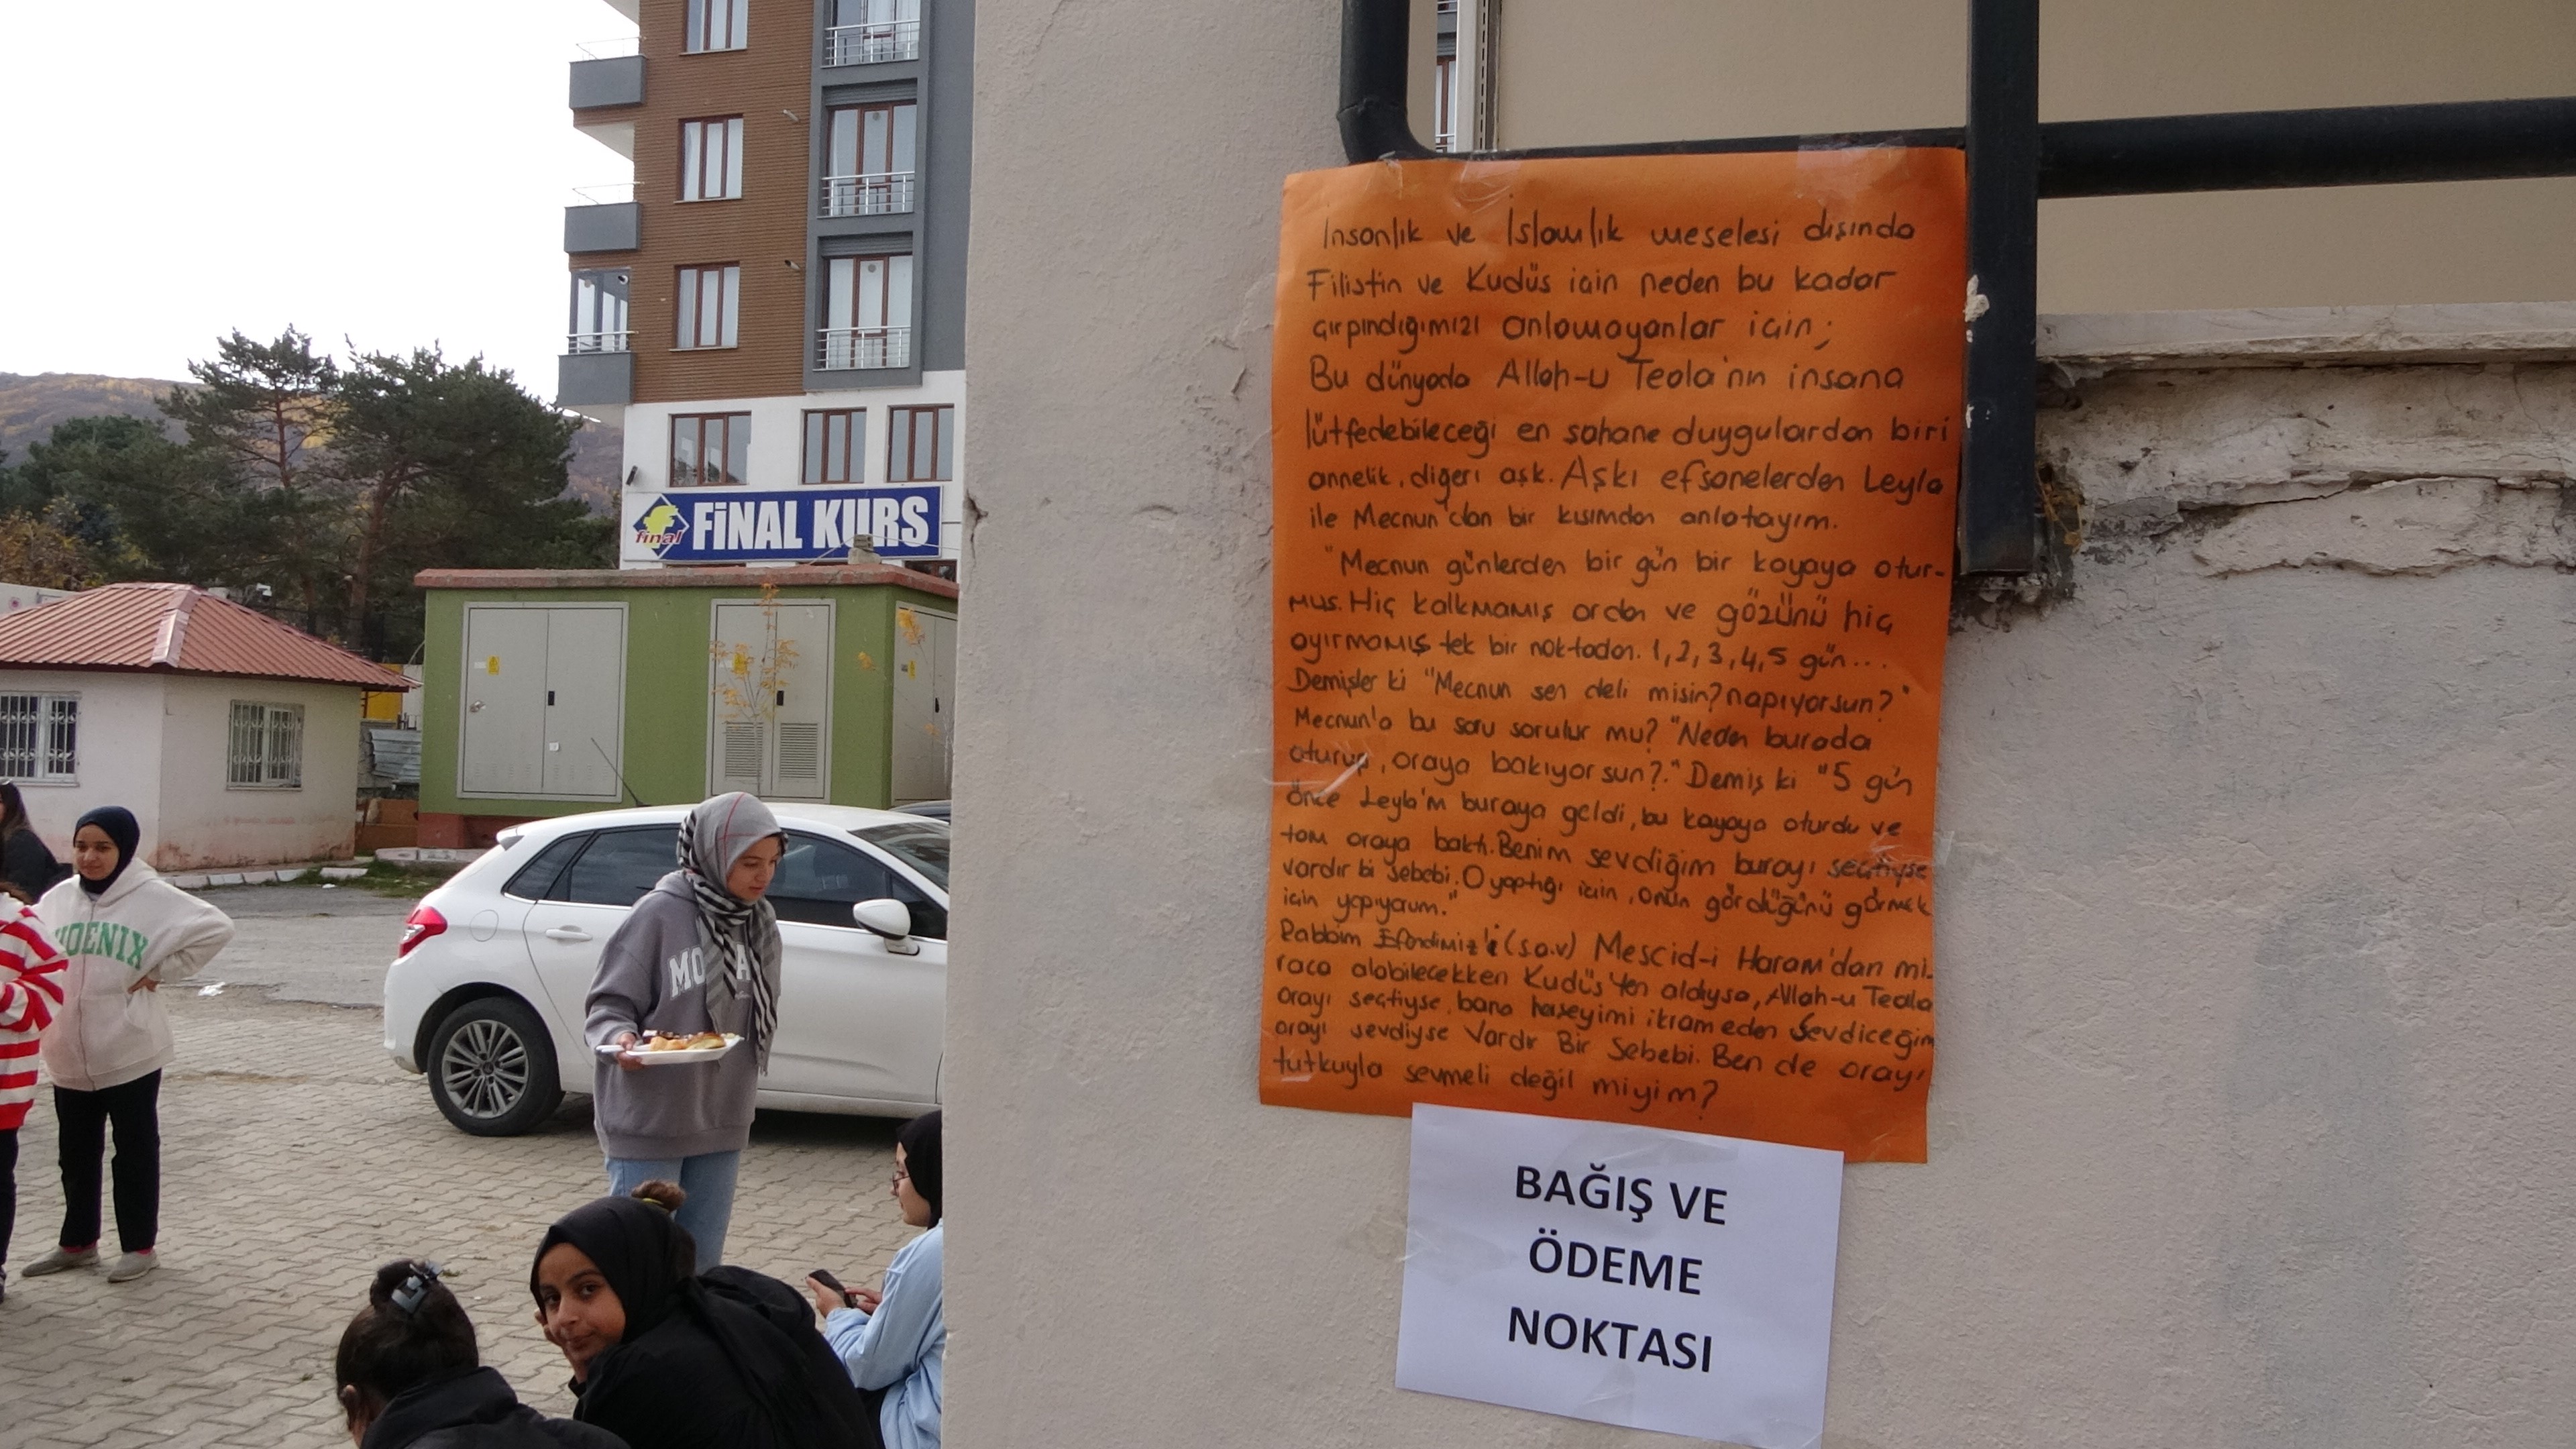 final
FİNAL KURS
HOENIX
MO
A
İnsanlık ve İslamlık meselesi dışında
Filistin ve Kudüs için neden bu kadar
çırpındığımızı anlamayanlar için;
Bu dünyada Allah-u Teala'nın insana
lütfedebileceği en şahane duygulardan biri
annelik, diğeri aşk. Aşkı efsanelerden Leyla
ile Mecnun'dan bir kısımdan anlatayım.
"Mecnun günlerden bir gün bir kayaya otur-
muş. Hiç kalkmamış ordan ve gözünü hiç
ayırmamış tek bir noktadan. 1, 2, 3, 4, 5 gün...
Demişler ki "Mecnun sen deli misin? napıyorsun?"
Mecnun'a bu soru sorulur mu? "Neden burada
oturup, oraya bakıyorsun?." Demiş ki "5 gün
önce Leyla'm buraya geldi, bu kayaya oturdu ve
tam oraya baktı. Benim sevdiğim burayı seçtiyse
vardır bi sebebi. O yaptığı için, onun gördüğünü görmek
için yapıyorum."
Rabbim Efendimiz'i (s.a.v) Mescid-i Haram'dan mi-
raca alabilecekken Kudüs'ten aldıysa, Allah-u Teala
orayı seçtiyse, bana herşeyimi ikram eden Sevdiceğim
orayı sevdiyse Vardır Bir Sebebi. Ben de orayı
tutkuyla sevmeli değil miyim?
BAĞIŞ VE
ÖDEME
NOKTASI